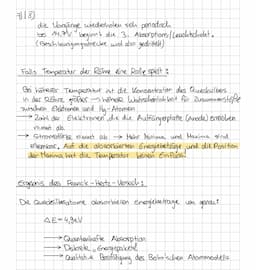 die Vorgänge wiederholen sich periodisch
bis 14,7V beginnt die 3. Absorptions/Leuchtschicht.
(Beschleunigungsstrecke wird also gedrittelt)
Falls Temperatur der Röhre eine Rolle spielt:
Bei höherer Temperatur ist die Konzentration des Quecksilbers
in der Röhre größer → höhere Wahrscheinlichkeit für Zusammenstöße
zwischen Elektronen und Hg-Atomen
→ Zahl der Elektronen die die Auffängerplatte (Anode) erreichen
nimmt ab
→ Stromstärke nimmt ab → Mehr Minima und Maxima sind
erkennbar. Auf die absorbierten Energiebeträge und die Position
der Maxima hat die Temperatur keinen Einfluss.
Ergebnis des Franck-Hertz-Versuch:
Die Quecksilberatome absorbieren Energiebeträge von genau:
ΔE = 4,9eV
→ Quantenhafte Absorption
→ Diskrete "Energiepakete"
→ Qualitative Bestätigung des Bohrschen Atommodells